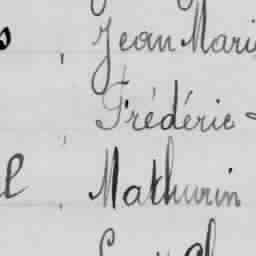 Jean Mari
Frédéric
Mathurin